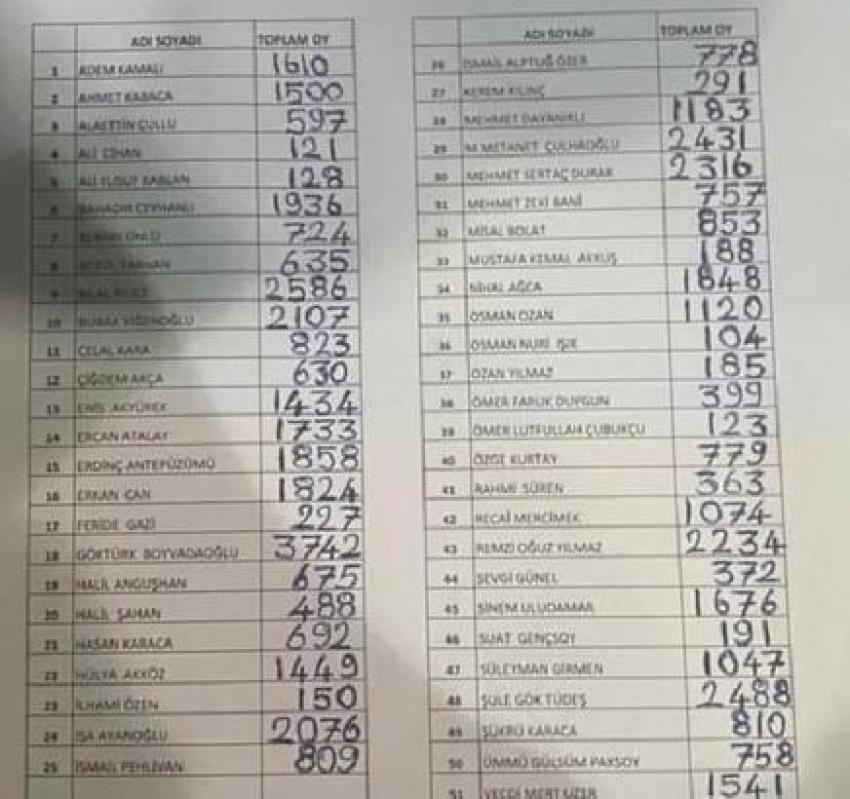 ADI SOYADI TOPLAM OY
1 ADEM KAMALI 1610
2 AHMET KABACA 1500
3 ALAETTİN ÇULLU 597
4 ALİ CİHAN 121
5 ALİ YUSUF KABLAN 128
6 BAHADIR CEYHANLI 1936
7 ÜNLÜ 724
8 635
9 2586
10 BURAK 2107
11 CELAL KARA 823
12 ÇİĞDEM AKÇA 630
13 ENİS AKYÜREK 1434
14 ERCAN ATALAY 1733
15 ERDİNÇ ANTEPÜZÜMÜ 1858
16 ERKAN CAN 1824
17 FERİDE GAZİ 227
18 GÖKTÜRK BOYVADAOĞLU 3742
19 HALİL ANGUŞHAN 675
20 HALİL ŞAHAN 488
21 HASAN KARACA 692
22 HÜLYA AKYÖZ 1449
23 İLHAMİ ÖZEN 150
24 İSA AYANOĞLU 2076
25 İSMAİL PEHLİVAN 809
ADI SOYADI TOPLAM OY
26 İSMAİL ALPTUĞ ÖZER 778
27 KEREM KILINÇ 291
28 MEHMET DAYANIKLI 1183
29 M METANET ÇULHAOĞLU 2431
30 MEHMET SERTAÇ DURAK 2316
31 MEHMET ZEKİ BANİ 757
32 MİSAL BOLAT 853
33 MUSTAFA KEMAL AKKUŞ 188
34 NİHAL AĞCA 1848
35 OSMAN OZAN 1120
36 OSMAN NURİ IŞIK 104
37 OZAN YILMAZ 185
38 ÖMER FARUK DUYGUN 399
39 ÖMER LUTFULLAH ÇUBUKÇU 123
40 ÖZGE KURTAY 779
41 RAHMİ SÜREN 363
42 RECAİ MERCİMEK 1074
43 REMZİ OĞUZ YILMAZ 2234
44 SEVGİ GÜNEL 372
45 SİNEM ULUDAMAR 1676
46 SUAT GENÇSOY 191
47 SÜLEYMAN GİRMEN 1047
48 ŞULE GÖK TÜDEŞ 2488
49 ŞÜKRÜ KARACA 810
50 ÜMMÜ GÜLSÜM PAKSOY 758
51 VECDİ MERT ÜZER 1541